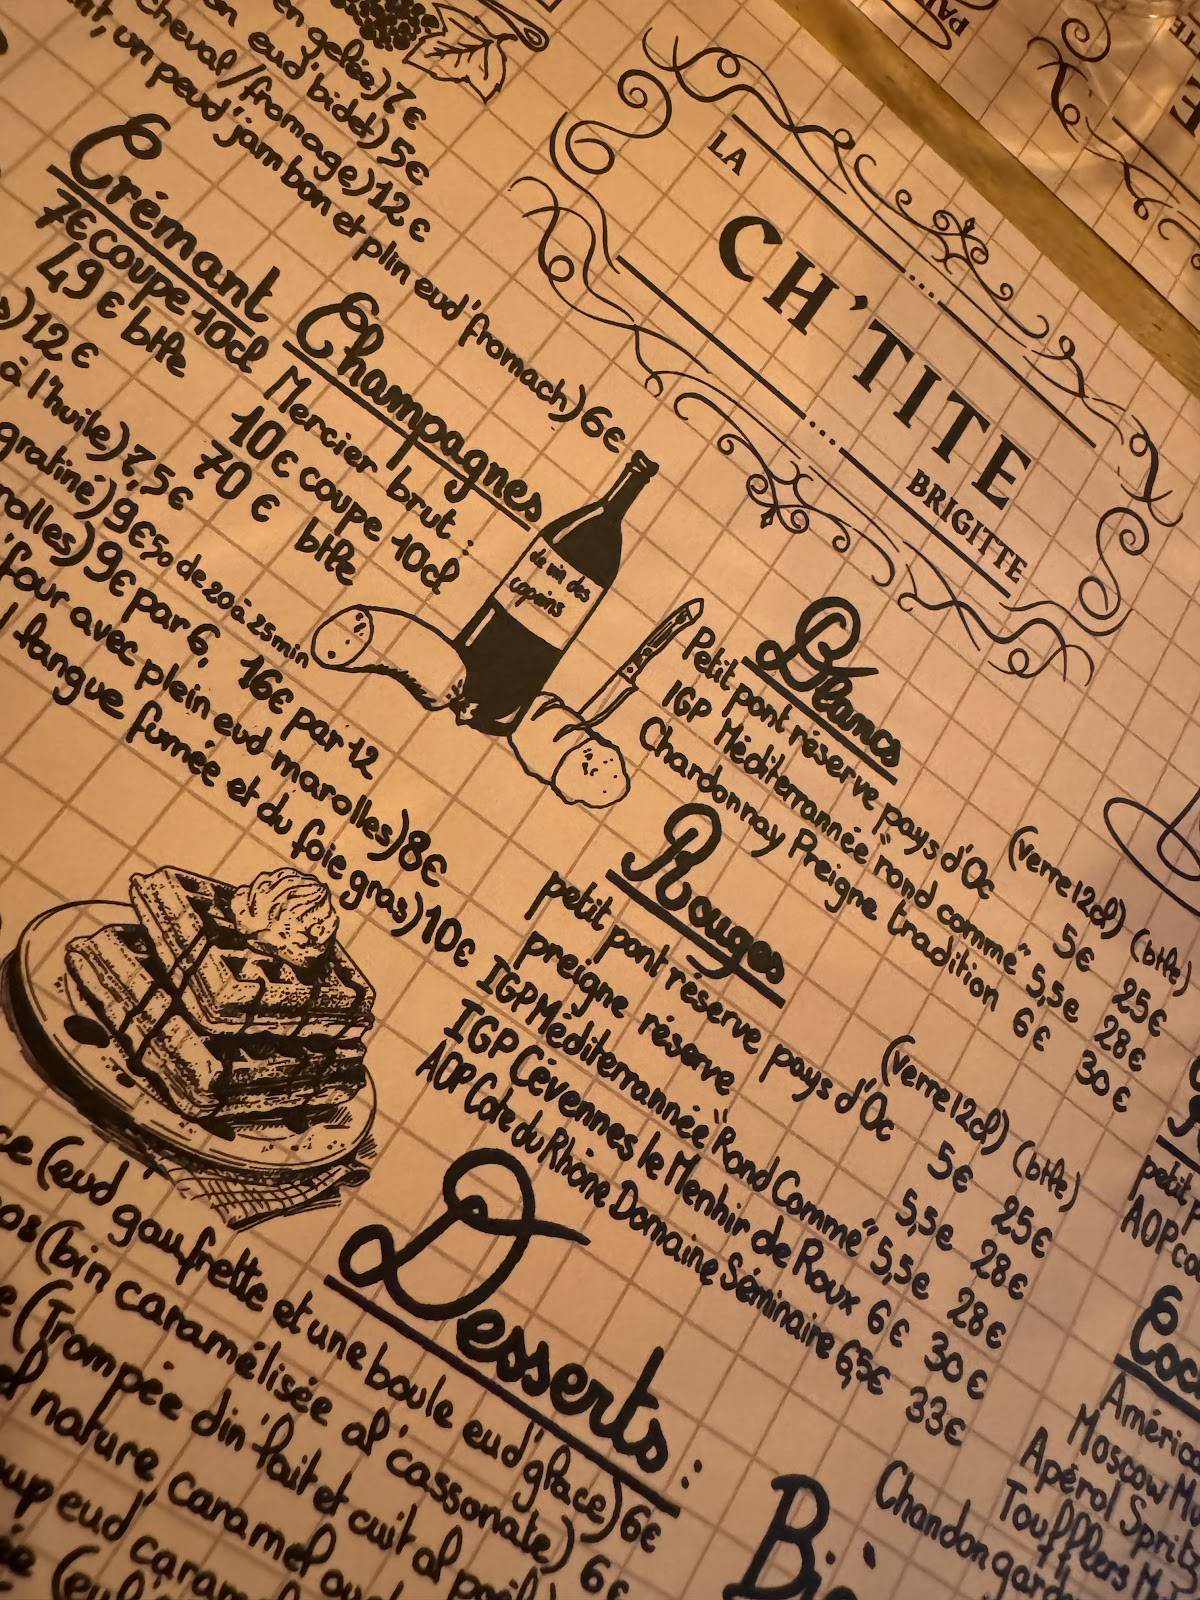 LA
CH'TITE
BRIGITTE
en gelée) 7€
eud' bidet) 5€
cheval/fromage) 12€
un peud' jambon et plin eud' fromach) 6€
Crémant
7€ coupe 10cl
49€ btle
Champagnes
Mercier brut :
10€ coupe 10cl
70€ btle
12€
à l'huile) 7,5€
gratiné) 9€50 de 20 à 25 min
9€ par 6, 16€ par 12
four avec plein eud marolles) 8€
langue fumée et du foie gras) 10€
du vin des
copains
Blancs
(verre 12cl) (btle)
Petit pont réserve pays d'Oc 5€ 25€
IGP Méditerrannée "rond comme" 5,5€ 28€
Chardonnay Preigne tradition 6€ 30€
Rouges
(verre 12cl) (btle)
petit pont réserve pays d'Oc 5€ 25€
preigne réserve 5,5€ 28€
IGP Méditerrannée "Rond Comme" 5,5€ 28€
IGP Cévennes le Menhir de Roux 6€ 30€
AOP Cote du Rhône Domaine Séminaire 6,5€ 33€
Desserts :
(eud gaufrette et une boule eud' glace) 6€
(bin caramélisée al' cassonate) 6€
(Trompée din' lait et cuit al
nature caramel
eud' caram
petit
AOP co
Moscow
Apérol Spritz
Chandon gard